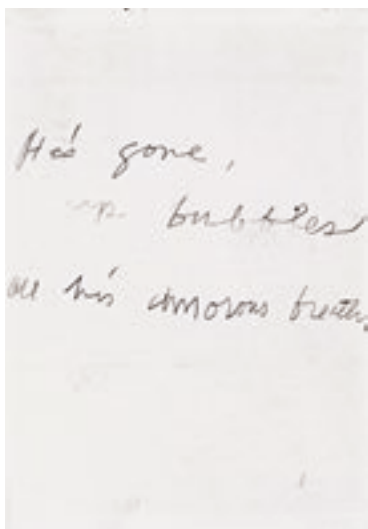 He's gone,
up bubbles
all his amorous breaths,